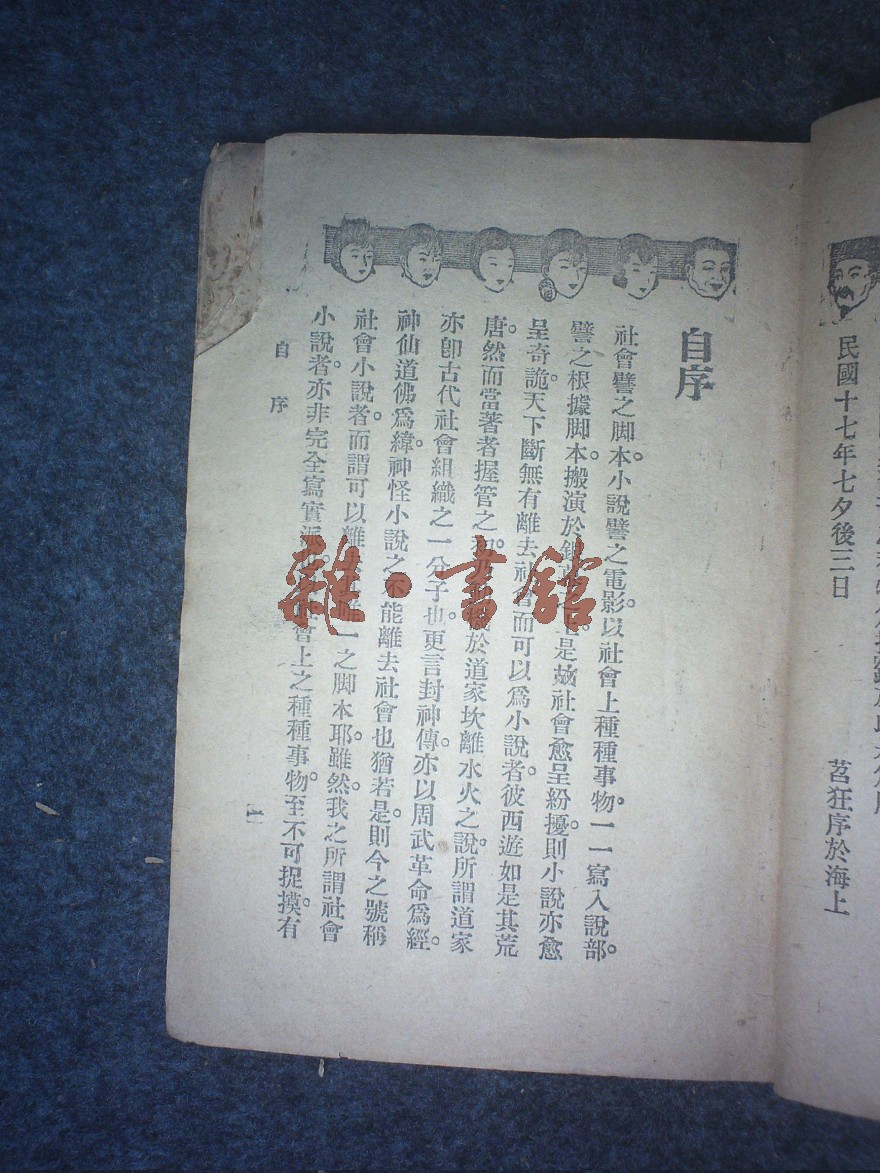 民國十七年七夕後三日
苕狂序於海上
自序
社會譬之脚本。小說譬之電影。以社會上種種事物。一一寫入說部。
譬之根據脚本。搬演於 是故社會愈呈紛擾。則小說亦愈
呈奇詭。天下斷無有離去社會而可以爲小說者。彼西遊如是其荒
唐。然而當著者握管之 於道家坎離水火之說。所謂道家
亦卽古代社會組織之一分子也。更言封神傳。亦以周武革命爲經。
神仙道佛爲緯。神怪小說之不能離去社會也猶若是。則今之號稱
社會小說者。而謂可以離 一之脚本耶。雖然。我之所謂社會
小說者。亦非完全寫實派 會上之種種事物。至不可捉摸。有
自序
一
雜·書館